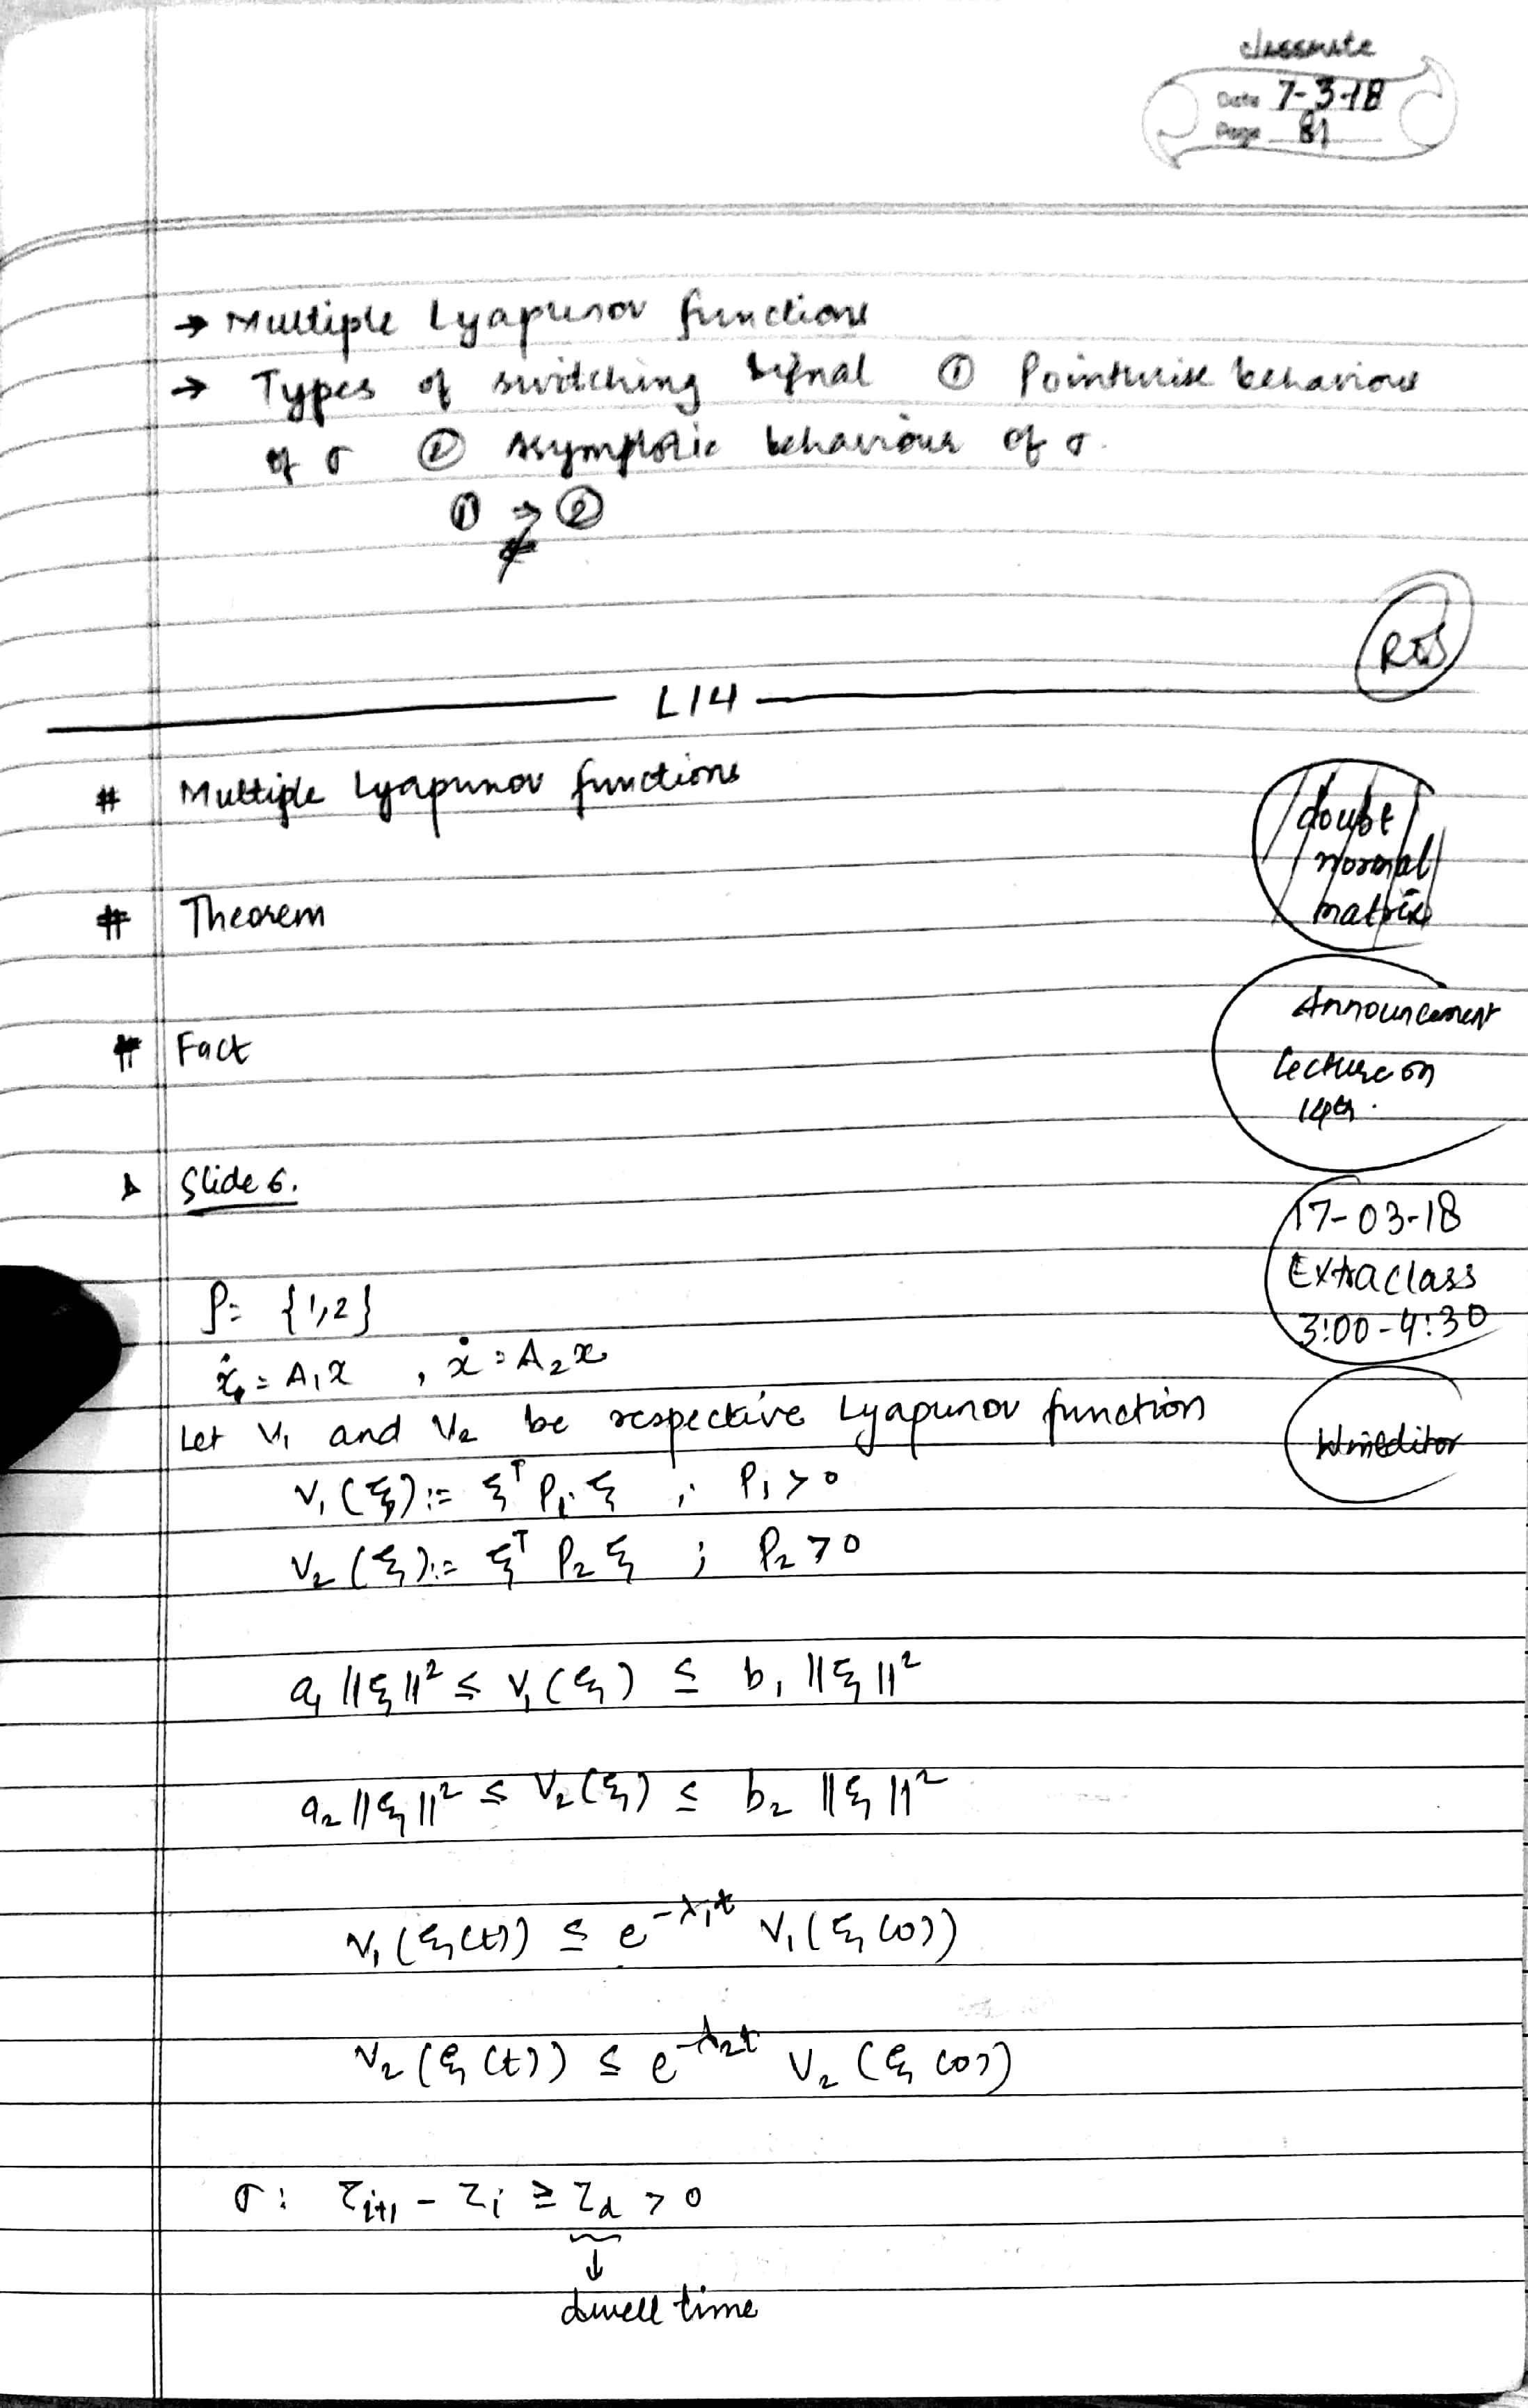 classmate
Date 7-3-18
Page 81
→ Multiple Lyapunov functions
→ Types of switching signal ① Pointwise behaviour
of σ ② Asymptotic behaviour of σ.
① ⇒ ②
L14
# Multiple Lyapunov functions
doubt
normal
matrix
# Theorem
Announcement
lecture on
14th.
# Fact
Slide 6.
17-03-18
Extraclass
3:00-4:30
P= {1,2}
ẋ = A₁x , ẋ = A₂x
Let V₁ and V₂ be respective Lyapunov function
V₁(ξ) := ξᵀ P₁ ξ ; P₁ > 0
V₂(ξ) := ξᵀ P₂ ξ ; P₂ > 0
a₁ ||ξ||² ≤ V₁(ξ) ≤ b₁ ||ξ||²
a₂ ||ξ||² ≤ V₂(ξ) ≤ b₂ ||ξ||²
V₁(ξ(t)) ≤ e^{-λ₁t} V₁(ξ(0))
V₂(ξ(t)) ≤ e^{-λ₂t} V₂(ξ(0))
σ: τᵢ₊₁ - τᵢ ≥ τ_d > 0
↓
dwell time